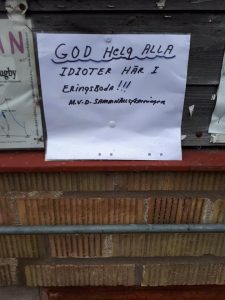 GOD HELG ALLA
IDIOTER HÄR I
ERINGSBODA!!!
M.V.D-SAMHÄLLSFÖRENINGEN
IN
ugby